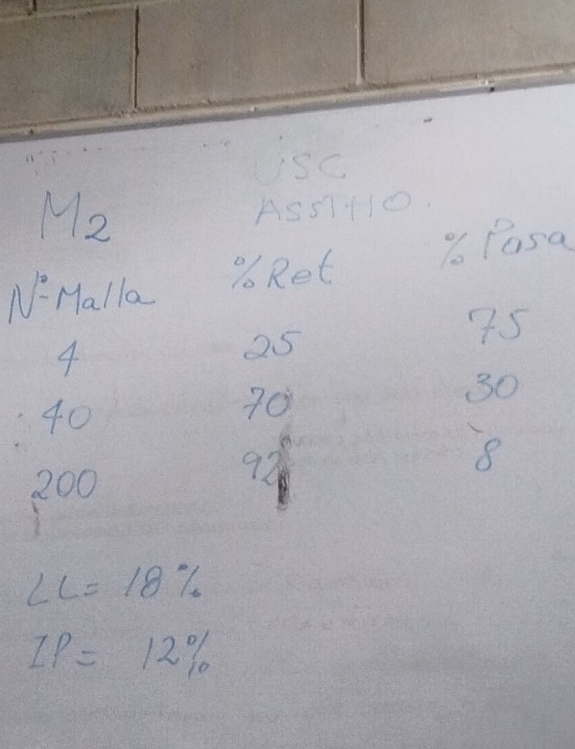 USC
ASSTHO.
M2
Nº Malla %Ret % Pasa
4 25 75
40 70 30
200 92 8
LL= 18%
IP= 12%